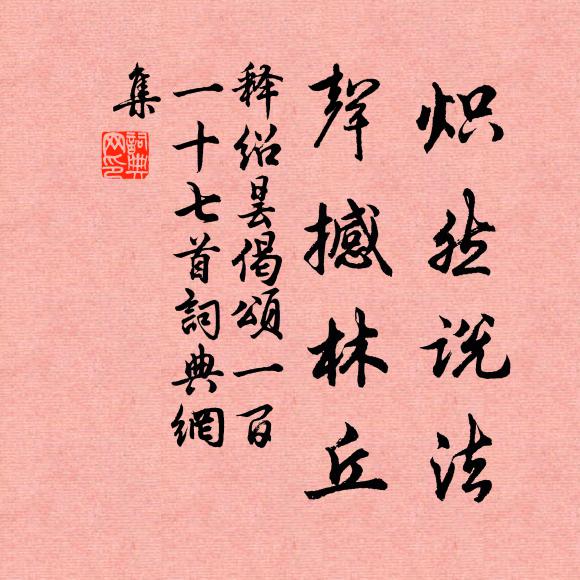 炽然说法
声撼林丘
释绍昙偈颂一百
一十七首词典網
集
詞典網印